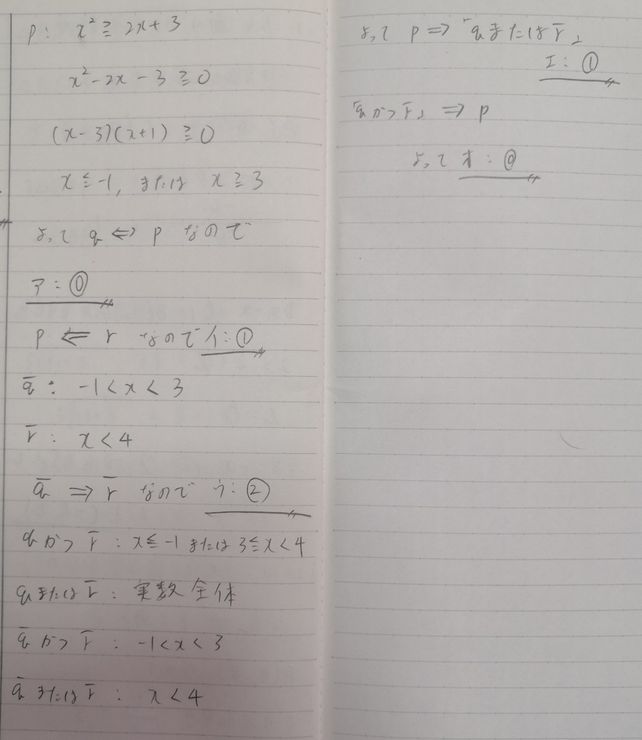 P: x² ≧ 2x+3
x²-2x-3≧0
(x-3)(x+1)≧0
x≦-1, または x≧3
よって q ⇔ p なので
ア:⓪
p ⇐ r なので イ:①
q̄: -1<x<3
r̄: x<4
q̄ ⇒ r̄ なので ウ:②
qかつ r̄ : x≦-1 または 3≦x<4
qまたは r̄ : 実数全体
q̄ かつ r̄ : -1<x<3
q̄ または r̄ : x<4
よって p⇒「qまたは r̄」
エ:①
「qかつ r̄」⇒ p
よって オ:⓪